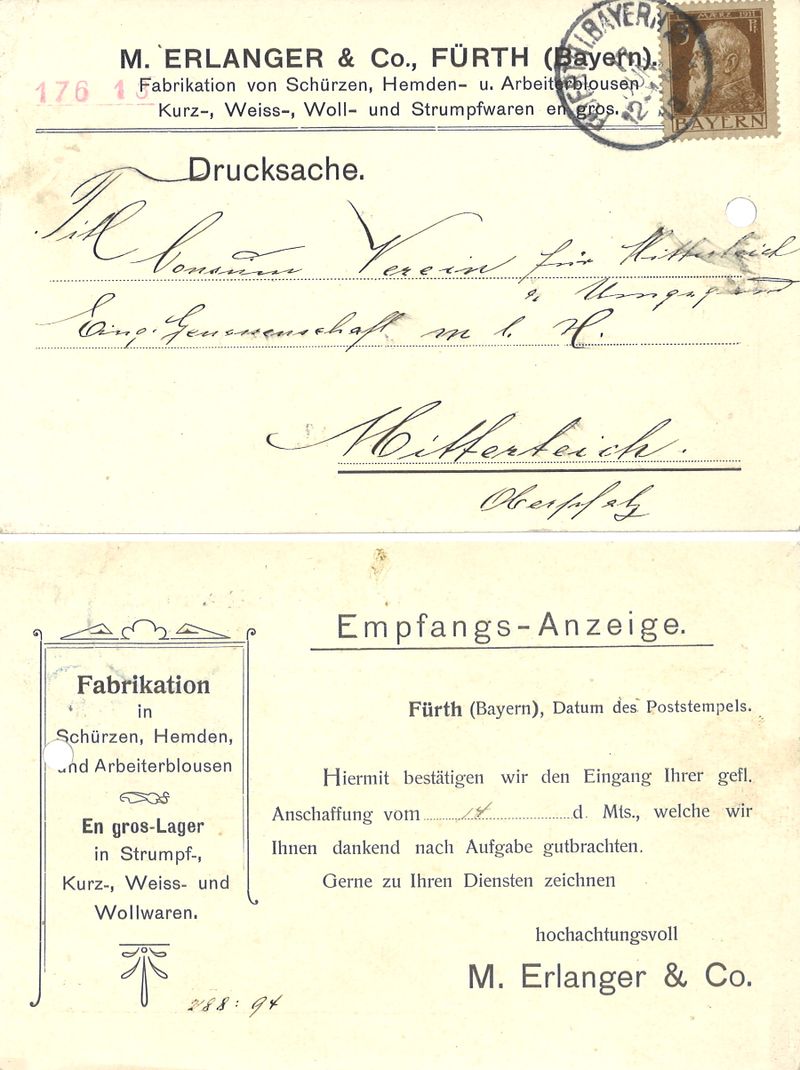 M. ERLANGER & Co., FÜRTH (Bayern).
Fabrikation von Schürzen, Hemden- u. Arbeiterblousen
Kurz-, Weiss-, Woll- und Strumpfwaren en gros.
176 15
MÆRZ 1911
3 Pf
BAYERN
Drucksache.
Titl Consum Verein für Mitterteich
& Umgegend
Eing. Genossenschaft m b. H.
Mitterteich.
Oberpfalz
Empfangs-Anzeige.
Fürth (Bayern), Datum des Poststempels.
Hiermit bestätigen wir den Eingang Ihrer gefl.
Anschaffung vom 14 d. Mts., welche wir
Ihnen dankend nach Aufgabe gutbrachten.
Gerne zu Ihren Diensten zeichnen
hochachtungsvoll
M. Erlanger & Co.
Fabrikation
in
Schürzen, Hemden,
und Arbeiterblousen
En gros-Lager
in Strumpf-,
Kurz-, Weiss- und
Wollwaren.
288: 94